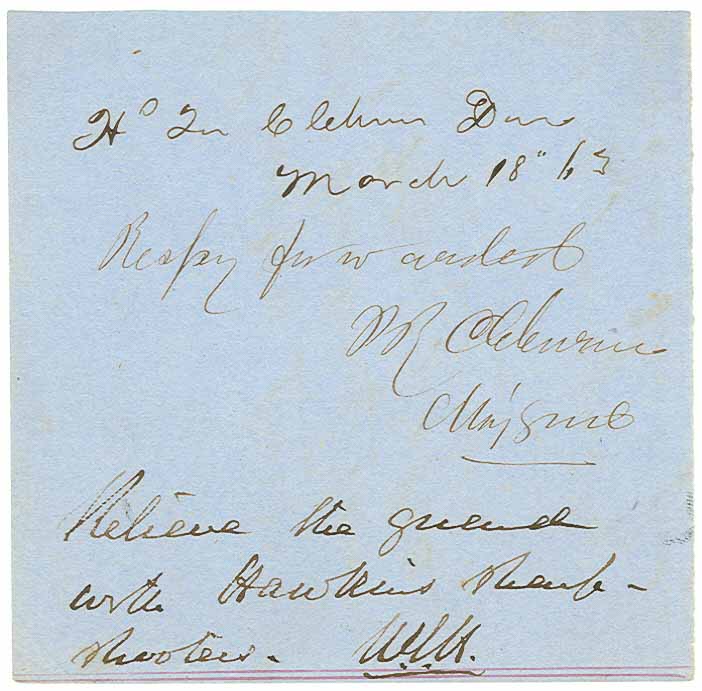 Hd Qr Cleburn Div
March 18" 63
Respy forwarded
P R Cleburne
Maj Genl
Relieve the guard
with Hawkins sharp-
shooters. W.J.H.